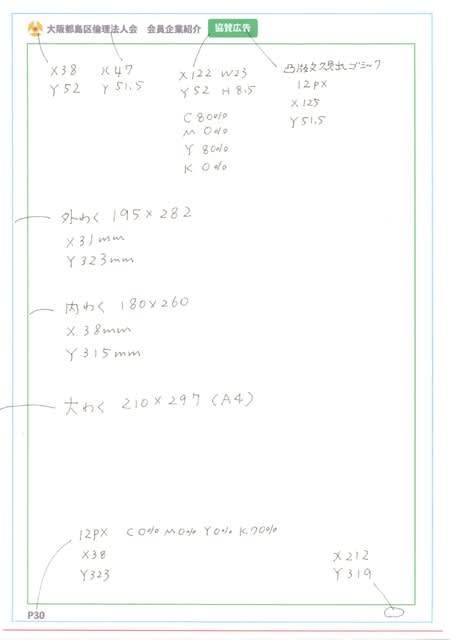 大阪都島区倫理法人会 会員企業紹介 協賛広告
X38
Y52
X47
Y51.5
X122 W23
Y52 H8.5
C80%
M0%
Y80%
K0%
凸版文久見出しゴシック
12px
X125
Y51.5
外わく 195×282
X31mm
Y323mm
内わく 180×260
X38mm
Y315mm
大わく 210×297 (A4)
12PX C0% M0% Y0% K70%
X38
Y323
X212
Y319
P30